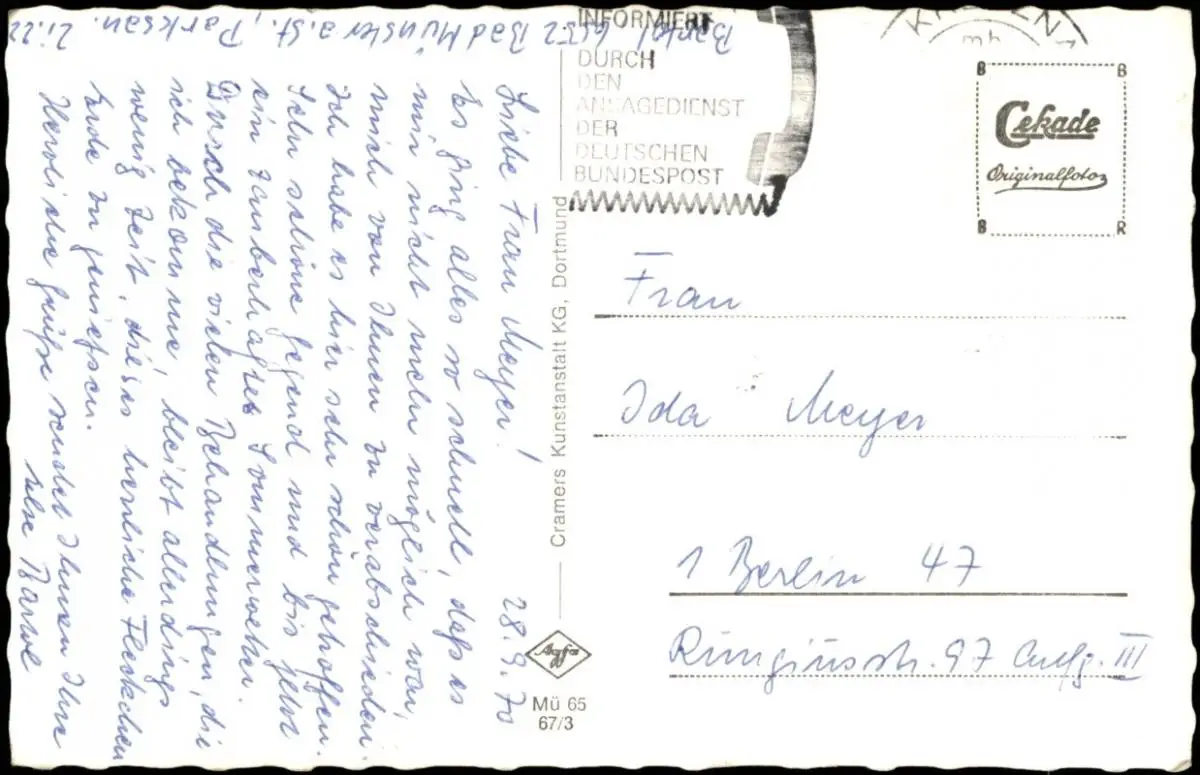 Bartel 6552 Bad Münster a. St., Parksan. Zi. 22
28.9.70
Liebe Frau Meyer!
Es ging alles so schnell, daß es
mir nicht mehr möglich war,
mich von Ihnen zu verabschieden.
Ich habe es hier sehr schön getroffen.
Sehr schöne Gegend und bis jetzt
ein zauberhaftes Sommerwetter.
Durch die vielen Behandlungen, die
ich bekomme, bleibt allerdings
wenig Zeit, dieses herrliche Fleckchen
Erde zu genießen.
Herzliche Grüße sendet Ihnen Ihre
Ilse Bartel
Cramers Kunstanstalt KG, Dortmund
Agfa
Mü 65
67/3
INFORMIERT
DURCH
DEN
ANSAGEDIENST
DER
DEUTSCHEN
BUNDESPOST
B B
Cekade
Originalfoto
B R
Frau
Ida Meyer
1 Berlin 47
Rungiusstr. 97 Aufg. III